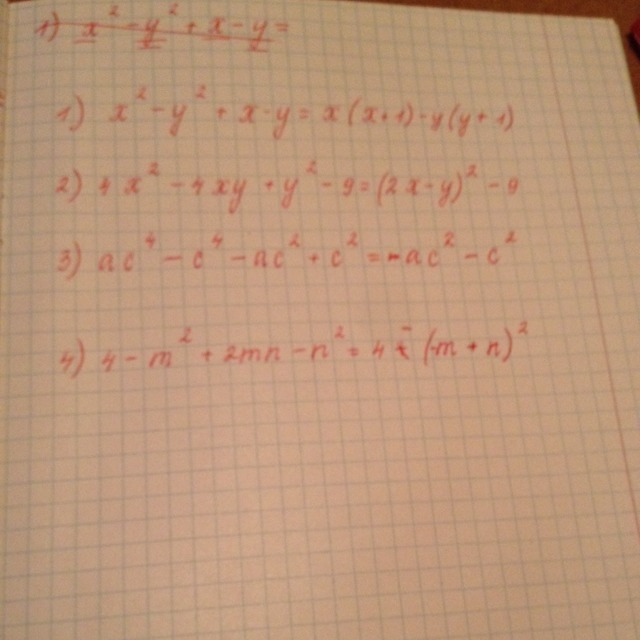 1) x² - y² + x - y =
1) x² - y² + x - y = x(x+1) - y(y+1)
2) 4x² - 4xy + y² - 9 = (2x - y)² - 9
3) ac⁴ - c⁴ - ac² + c² = -ac² - c²
4) 4 - m² + 2mn - n² = 4 - (m + n)²